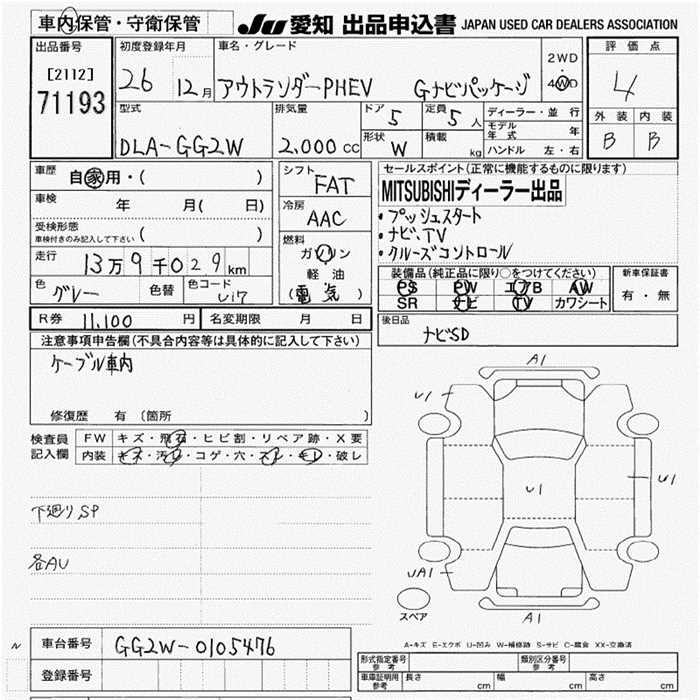 車内保管・守衛保管
JU 愛知 出品申込書 JAPAN USED CAR DEALERS ASSOCIATION
出品番号
[2112]
71193
初度登録年月
26 12月
車名・グレード
アウトランダーPHEV Gナビパッケージ
2WD
・
4WD
評価点
4
外装 内装
B B
型式
DLA-GG2W
排気量
2,000 cc
ドア 5
定員 5人
形状 W
積載 kg
ディーラー・並行
モデル年式 年
ハンドル 左・右
車歴 自家用・( )
車検 年 月( 日)
受検形態
車検付きのみ記入して下さい ( )
走行 13万9千029km
色 グレー 色替 色コード U17
シフト FAT
冷房 AAC
燃料
ガソリン
軽油
(電気)
セールスポイント(正常に機能するものに限ります)
MITSUBISHIディーラー出品
・プッシュスタート
・ナビ、TV
・クルーズコントロール
装備品(純正品に限り○をつけてください)
PS PW エアB AW
SR ナビ TV カワシート
新車保証書
有・無
R券 11,100 円 名変期限 月 日
後日品
ナビSD
注意事項申告欄(不具合内容等は具体的に記入して下さい)
ケーブル車内
修復歴 有(箇所 )
検査員
記入欄
FW キズ・飛石・ヒビ割・リペア跡・X要
内装 キズ・汚レ・コゲ・穴・スレ・キレ・破レ
下廻りSP
各AU
A1
U1
U1
U1
UA1
A1
スペア
A-キズ E-エクボ U-凹み W-補修跡 S-サビ C-腐食 XX-交換済
車台番号 GG2W-0105476
登録番号
形式指定番号
参考
類別区分番号
参考
車庫証明用
参考
長さ cm 幅 cm 高さ cm